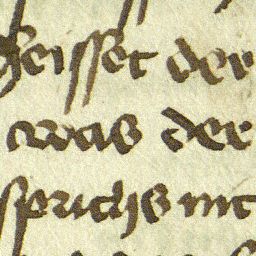 heisset der
was der
sprichs nit